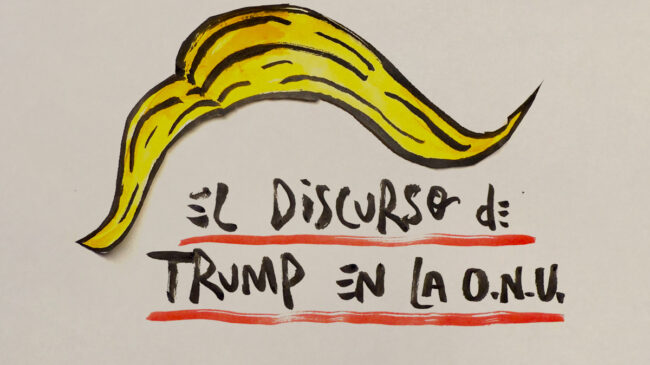 EL DISCURSO de
TRUMP EN LA O.N.U.